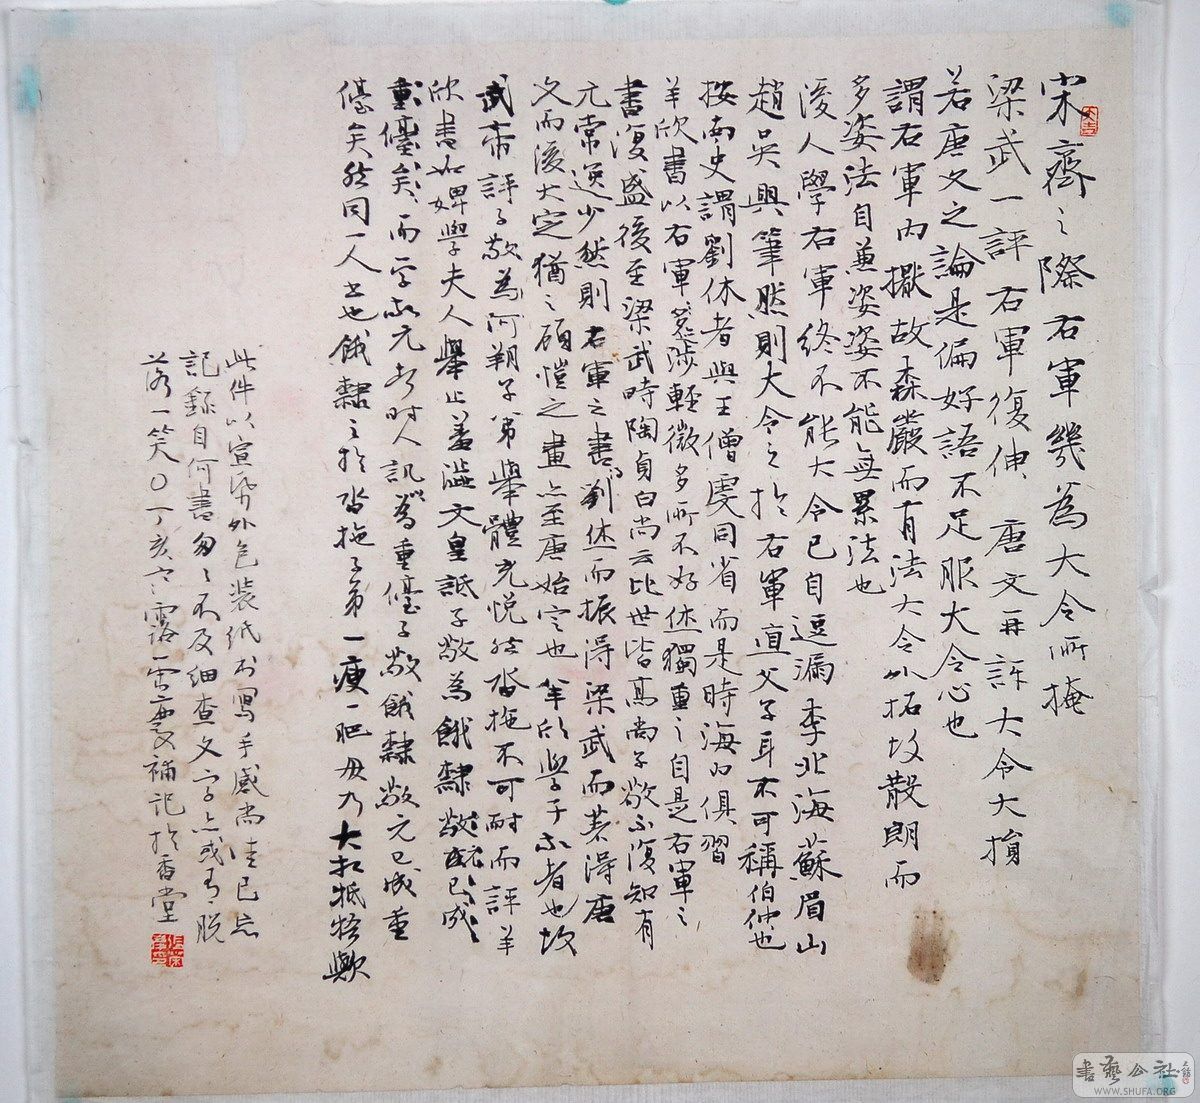 宋齊之際右軍幾為大令所掩
梁武一評右軍復伸 唐文再評大令大損
若唐文之論是偏好語不足服大令心也
謂右軍內擫故森嚴而有法大令外拓故散朗而
多姿法自兼姿姿不能無累法也
後人學右軍終不能大令已自逗漏李北海蘇眉山
趙吳興筆然則大令之於右軍直父子耳不可稱伯仲也
按南史謂劉休者與王僧虔同省而是時海內俱習
羊欣書以右軍蹤涉輕微多所不好休獨重之自是右軍之
書復盛後至梁武時陶貞白尚云比世皆高尚子敬不復知有
元常逸少然則右軍之書劉休而振得梁武而著得唐
文而後大定猶之顧愷之畫亦至唐始定也羊欣學子敬者也故
武帝評子敬為河朔子弟舉體充悅然沓拖不可耐而評羊
欣書如婢學夫人舉止羞澁文皇詆子敬為餓隸敬元已成
重儓矣而子敬元者時人訊為重儓子敬餓隸敬元已成重
儓矣然同一人書也餓隸之於沓拖子弟一瘦一肥毋乃大相牴牾歟
此件以宣紙外包裝紙书寫手感尚佳已忘
記錄自何書匆匆不及細查文字亦或有脫
落一笑〇丁亥寒露 補記於香堂
書藝公社
WWW.SHUFA.ORG